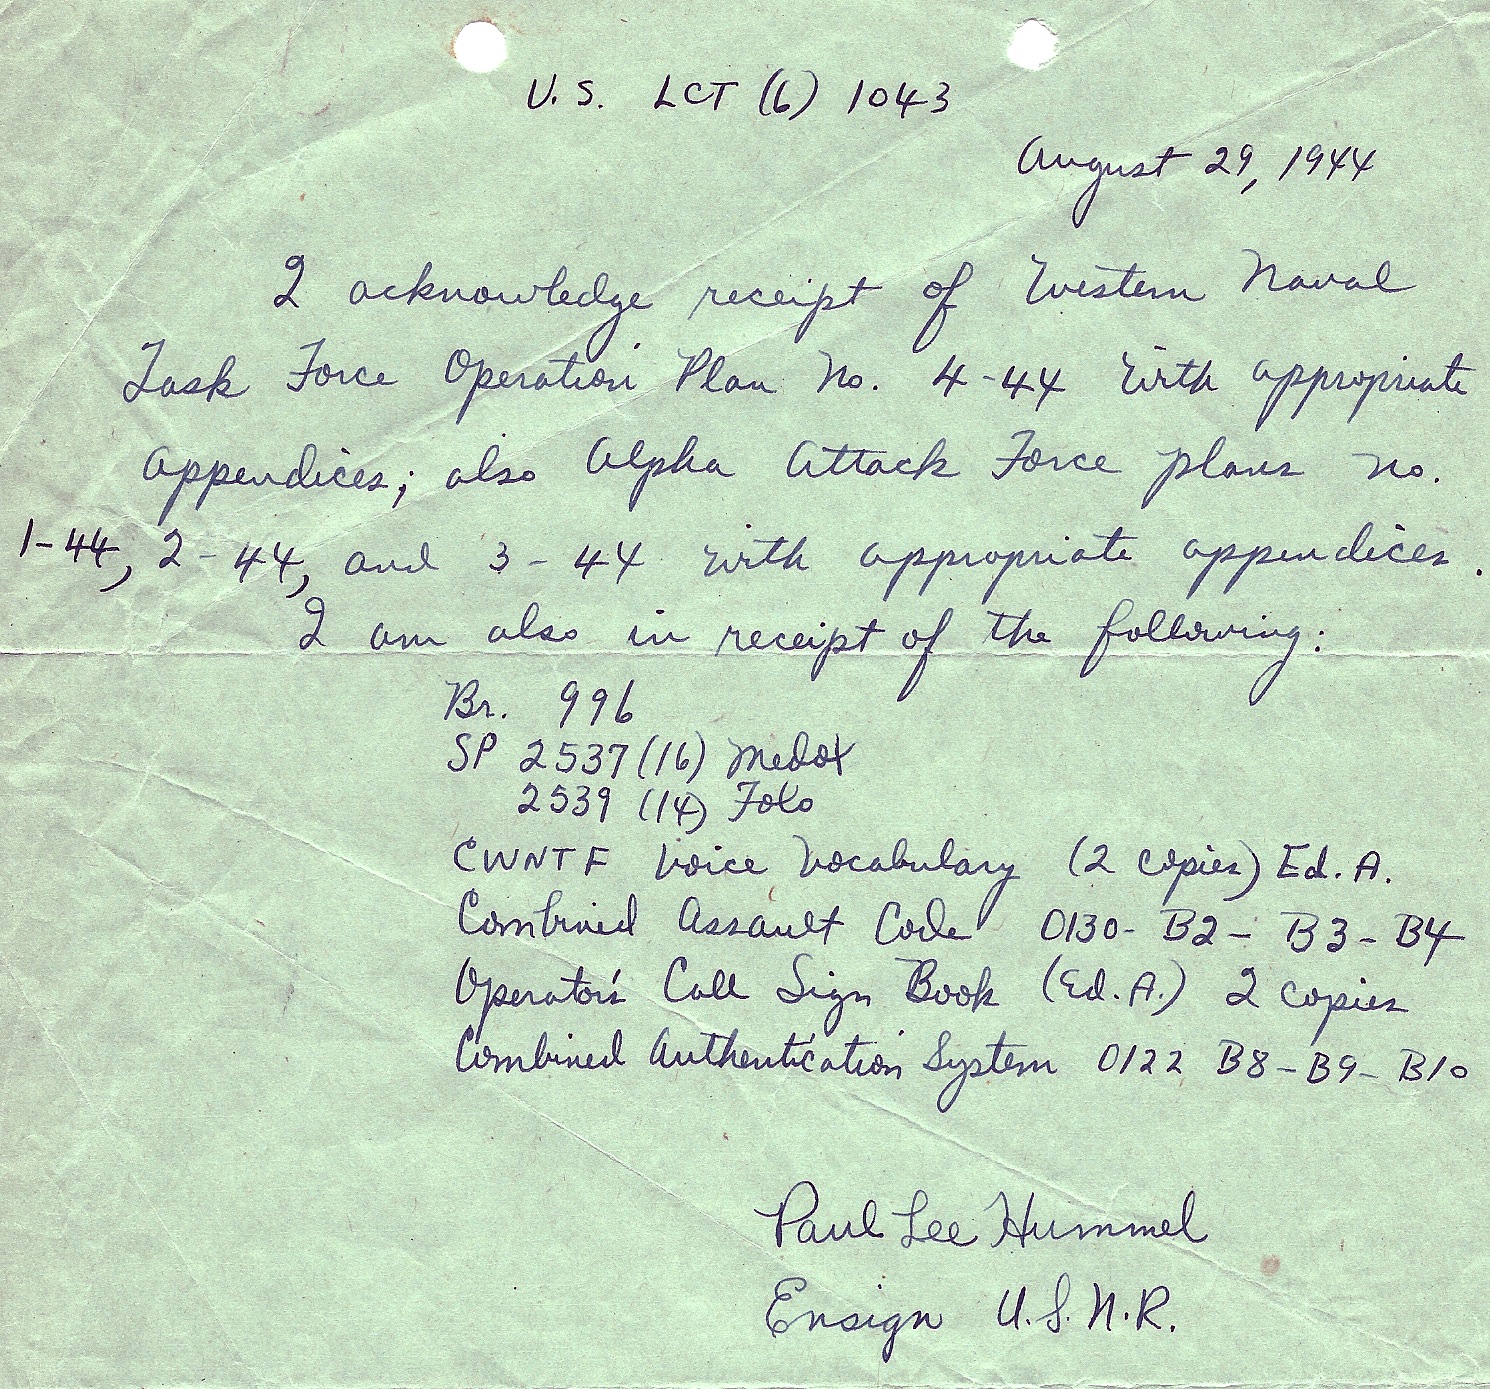 U.S. LCT (6) 1043
August 29, 1944
I acknowledge receipt of Western Naval
Task Force Operation Plan No. 4-44 with appropriate
appendices; also Alpha Attack Force plans no.
1-44, 2-44, and 3-44 with appropriate appendices.
I am also in receipt of the following:
Br. 996
SP 2537 (16) Medox
2539 (14) Foxo
CWNTF Voice Vocabulary (2 copies) Ed. A.
Combined Assault Code 0130- B2- B3- B4
Operator's Call Sign Book (Ed. A.) 2 copies
Combined Authentication System 0122 B8-B9-B10
Paul Lee Hummel
Ensign U.S.N.R.